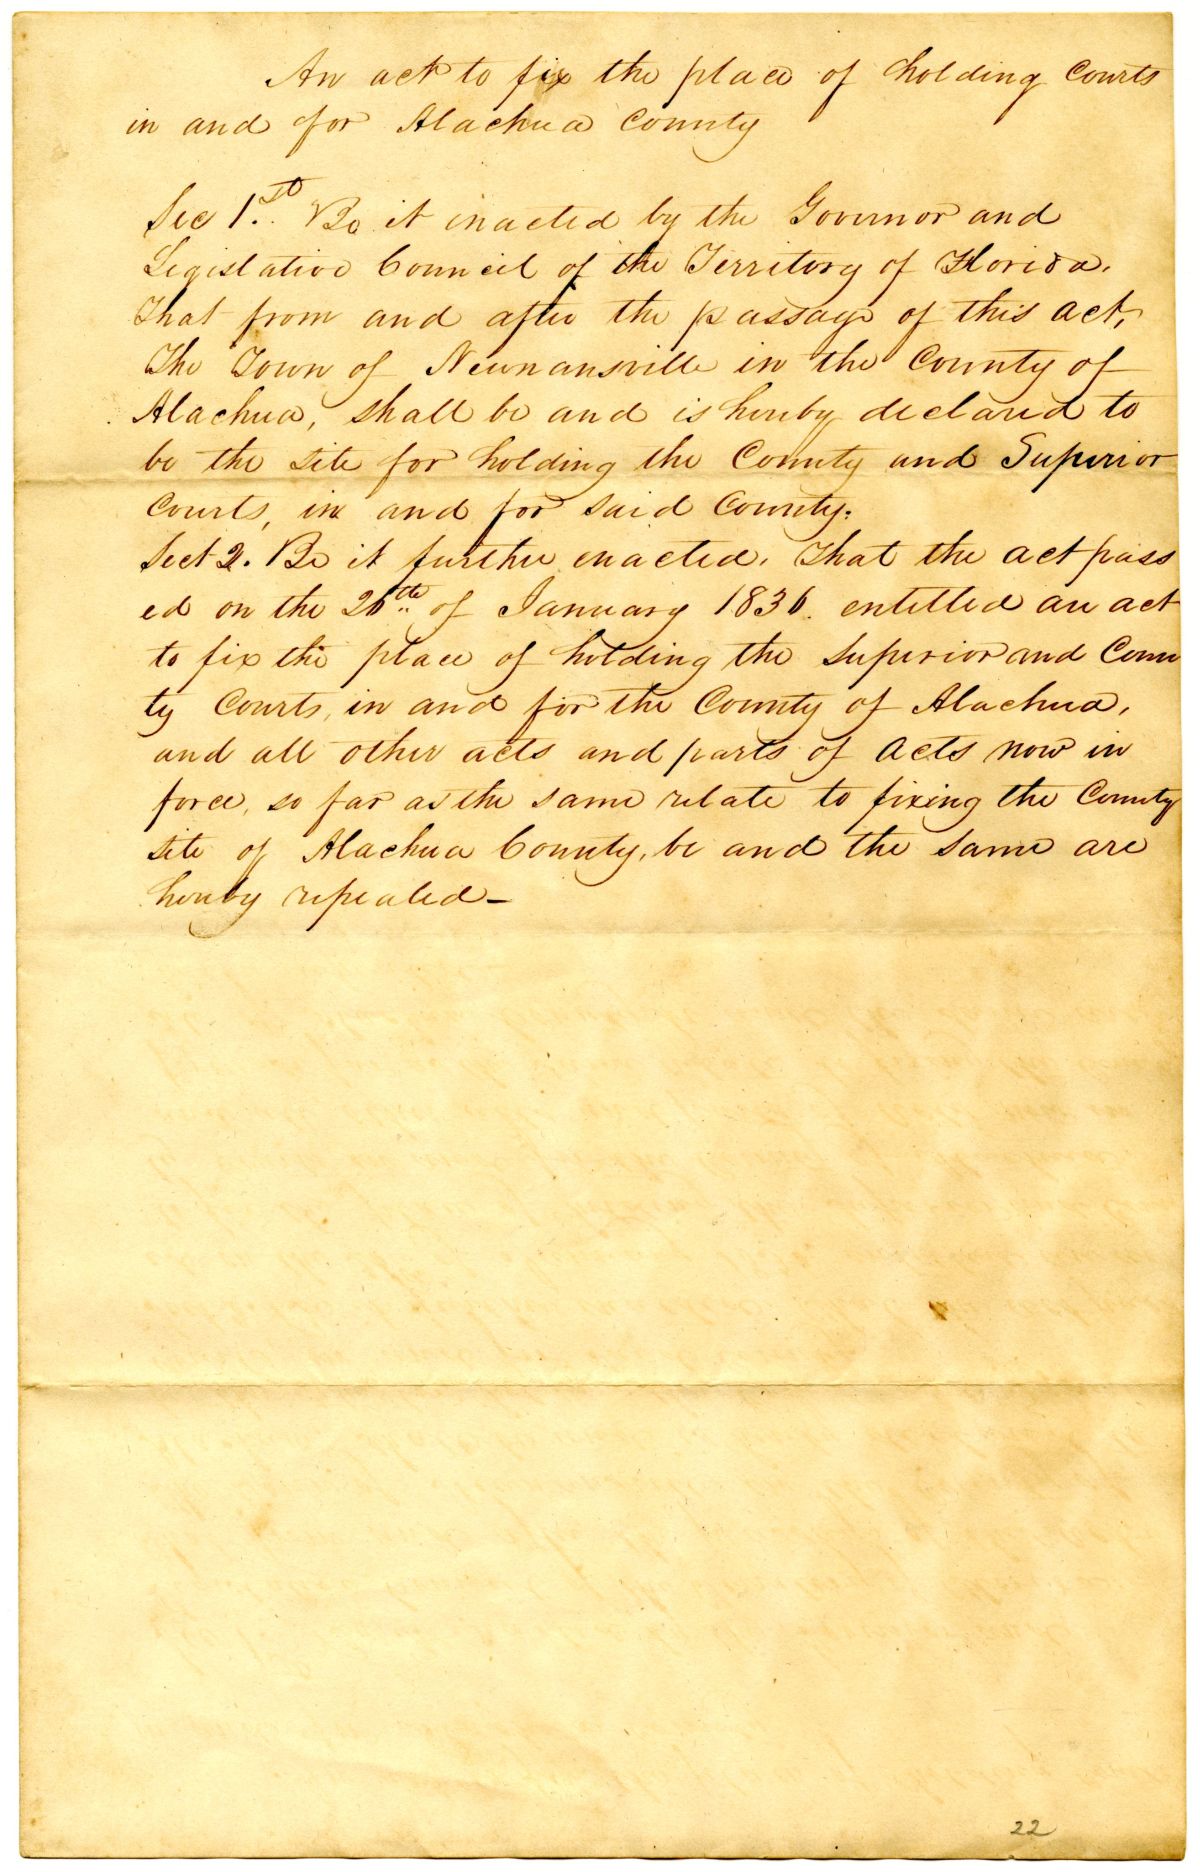 An act to fix the place of holding Courts
in and for Alachua County
Sec 1.st Be it inacted by the Governor and
Legislative Council of the Territory of Florida.
That from and after the passage of this act,
The Town of Newnansville in the County of
Alachua, shall be and is hereby declared to
be the site for holding the County and Superior
Courts, in and for said County.
Sect 2. Be it further enacted. That the act pass
ed on the 26th of January 1836. entitled an act
to fix the place of holding the Superior and Coun
ty Courts, in and for the County of Alachua,
and all other acts and parts of acts now in
force, so far as the same relate to fixing the County
site of Alachua County, be and the same are
hereby repealed-
22